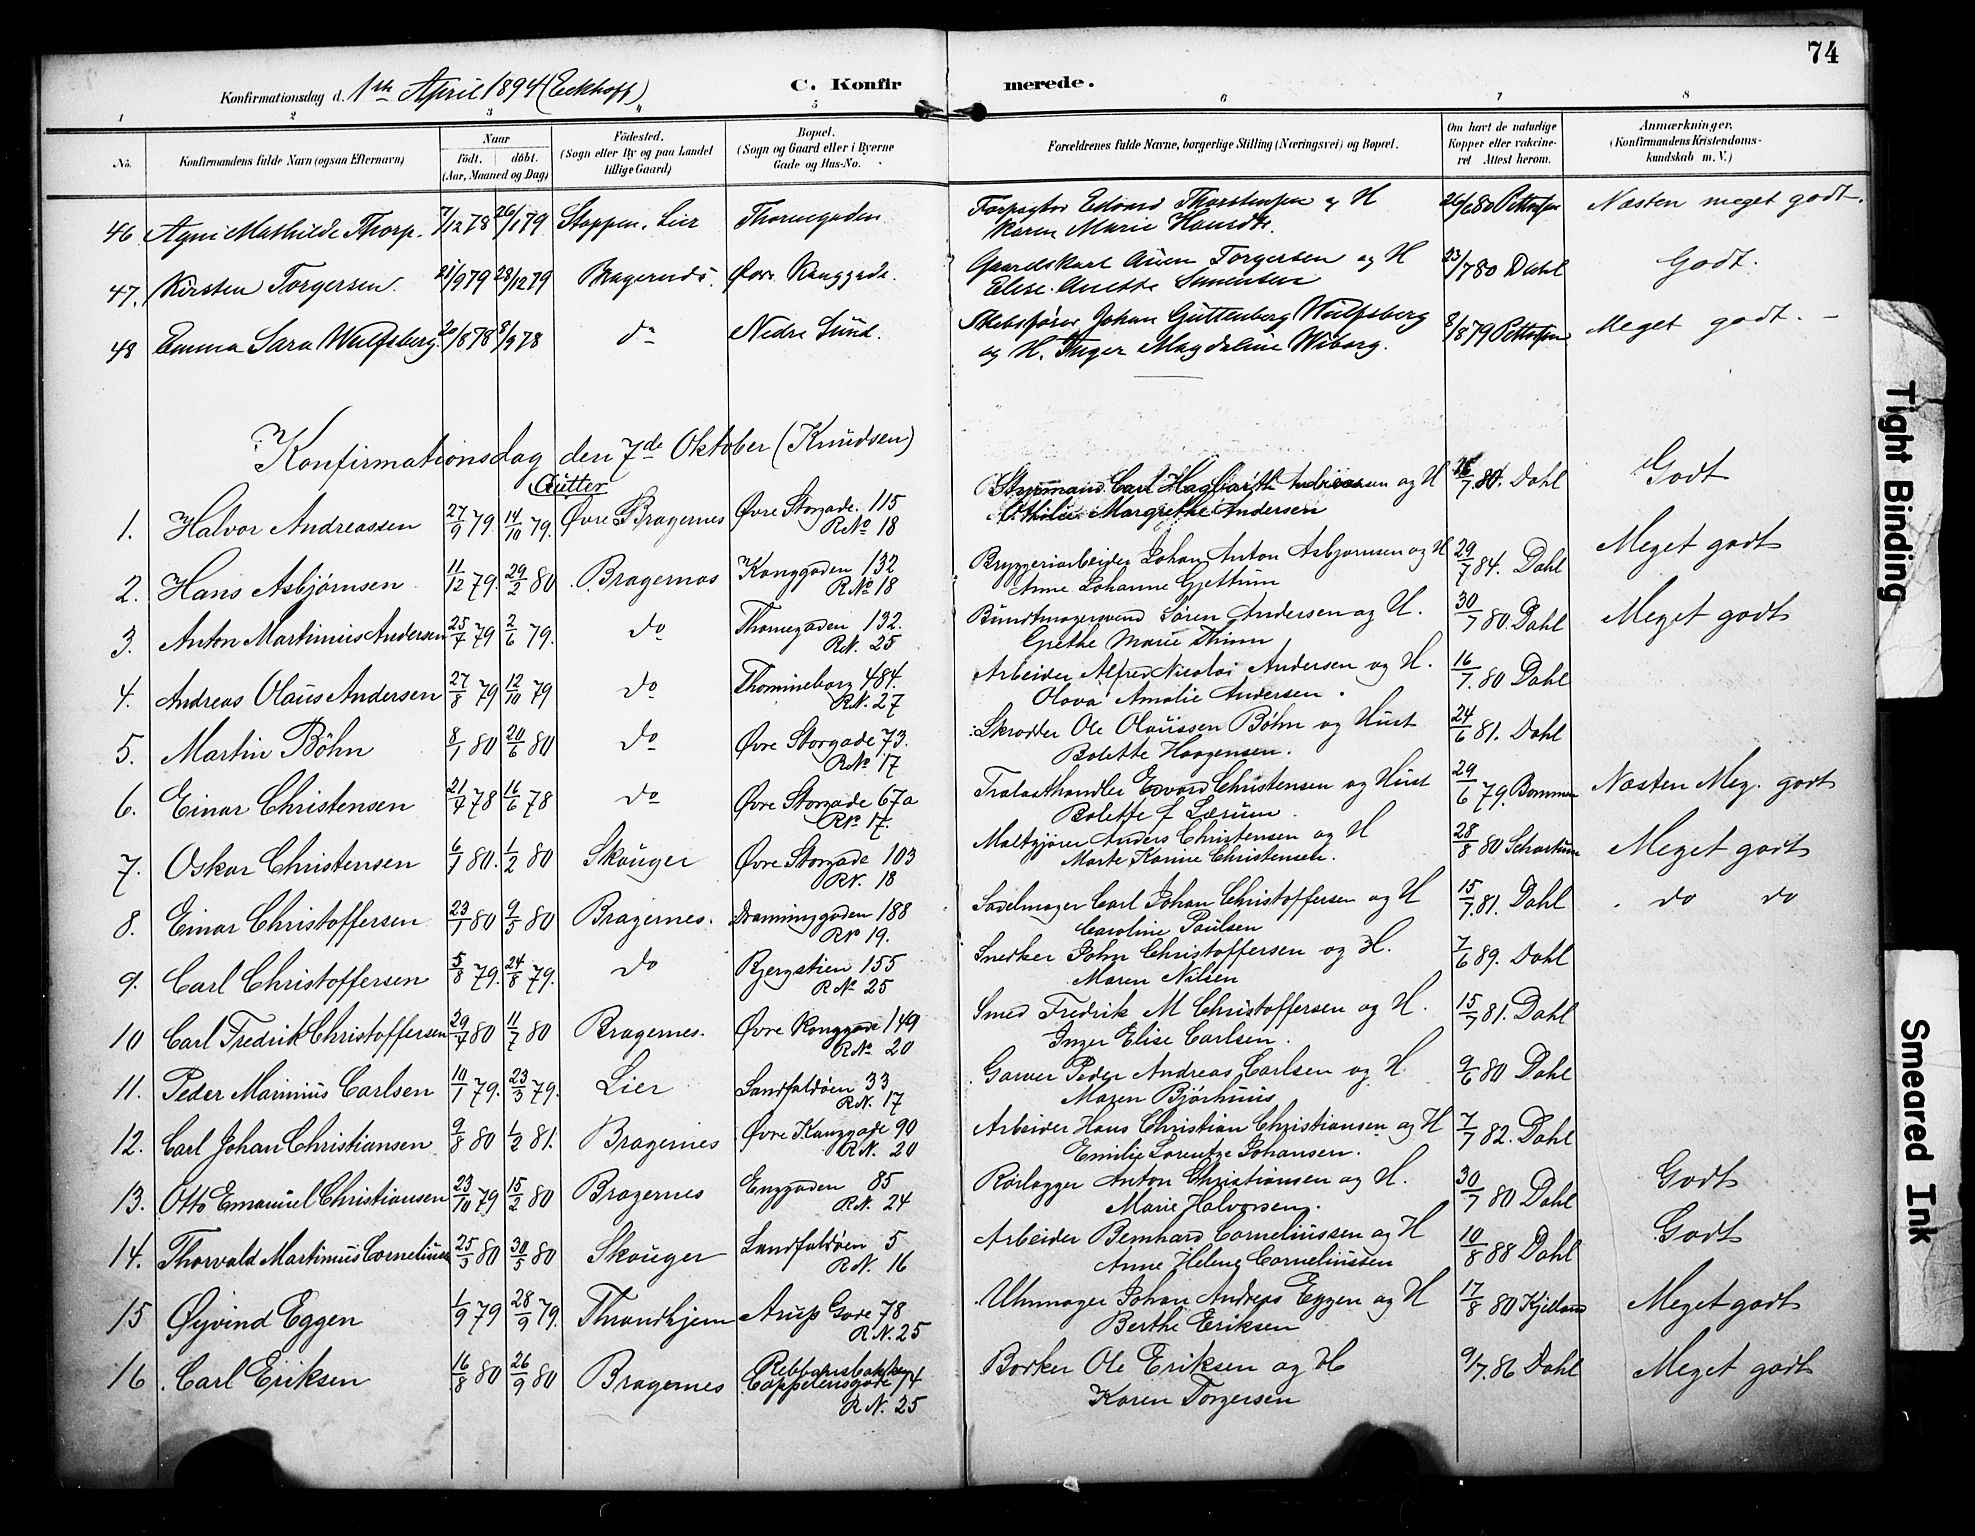 74
Konfirmationsdag d. 1ste April 1894 (Eckhoff) C. Konfirmerede.
1 2 3 4 5 6 7 8
No. Konfirmandens fulde Navn (ogsaa Efternavn) Naar født. døbt. (Aar, Maaned og Dag) Fødested. (Sogn eller By og paa Landet tillige Gaard) Bopæl. (Sogn og Gaard eller i Byerne Gade og Hus-No. Forældrenes fulde Navne, borgerlige Stilling (Næringsvei) og Bopæl. Om havt de naturlige Kopper eller vakcineret Attest herom. Anmærkninger. (Konfirmandens Kristendomskundskab m. V.)
46 Agni Mathilde Thorp. 7/12 78 26/1 79 Stoppen, Lier Thornegaden Forpagter Edvard Thorstensen og H 26/6 80 Pettersen Næsten meget godt.
Karen Marie
47. Kirsten Torgersen. 21/9 79 28/12 79 Bragernes. Øvre Konggade. Gaardskarl Torgersen og H 23/7 80 Dahl Godt.
Elise Anette Simensen
48 Emma Sara Wulfsberg. 20/8 78 8/9 78 do Nedre Sund. Skibsfører Johan Guttenberg Wulfsberg 2/8 79 Pettersen Meget godt. -
og H. Inger Magdaline Wiborg.
Konfirmationsdag den 7de Oktober (Knudsen)
Gutter
1. Halvor Andreassen 27/9 79. 14/10 79. Øvre Bragernes Øvre Storgade. 115 R No 18 Styrmand Carl Hagbarth Andreassen og H 26/7 80. Dahl Godt
Othilie Margrethe Andersen
2. Hans Asbjørnsen 11/12 79. 29/2 80 Bragernes Konggaden 132 R No 18 Bryggeriarbeider Johan Anton Asbjørnsen og H 29/7 84. Dahl Meget godt
Anne Johanne Gjettum
3. Anton Martinius Andersen 25/4 79 2/6 79. do Thornegaden 132. R.N. 25 Bundtmagersvend Søren Andersen og H. 30/7 80 Dahl Meget godt
Grethe Marie
4. Andreas Olaus Andersen 27/8 79 12/10 79 do Thomineborg 484. R.N. 27 Arbeider Alfred Nicolai Andersen og H. 16/7. 80 Dahl
Olava Amalie Andersen.
5. Martin Bøhn 8/1 80 20/6 80 do Øvre Storgade 73. R No 17 Skrædder Ole Olaussen Bøhn og Hust 24/6 81. Dahl
Bolette Haagensen.
6. Einar Christensen 21/4 78 16/6 78 do Øvre Storgade 67a R No 17. Trælasthandler Edvard Christensen og Hust 29/6 79. Næsten Meg. godt
Bolette f Lærum.
7. Oskar Christensen 6/1 80. 1/2 80 Skouger Øvre Storgade 103 R N. 18 Maltgjører Anders Christensen og H 28/8 80 Schartum Meget godt
Marte Karine Christensen.
8. Einar Christoffersen 23/1 80 9/5 80 Bragernes. Dronninggaden 188 R No 19. Sadelmager Carl Johan Christoffersen og H 15/7. 81. Dahl do do
Caroline Paulsen
9. Carl Christoffersen 5/8 79. 24/8 79. do Bjergstien 155 R No 25 Snedker John Christoffersen og H. 7/6 89. Dahl
Maren Nilsen
10 Carl Fredrik Christoffersen 29/4 80 11/7 80 Bragernes. Øvre Konggade 149 R No 20 Smed Fredrik M Christoffersen og H. 15/7 81. Dahl
Inger Elise Carlsen.
11. Peder Marinius Carlsen 10/1 79. 23/3 79. Lier Landfaldøen 33 R N. 17 Garver Peder Andreas Carlsen og H. 9/6 80 Dahl
Maren Bjørhuus
12. Carl Johan Christiansen 9/8 80 1/2 81. Bragernes Øvre Konggade 90 R.N. 20 Arbeider Hans Christian Christiansen og H 7/7 82. Dahl
Emilie Lorentze Johansen.
13. Otto Emanuel Christiansen 23/10 79 15/2 80 Bragernes Enggaden 85 R.N. 24 Rørlægger Anton Christiansen og H. 30/7 80 Dahl Godt
Marie Halvorsen.
14. Thorvald Martinius Cornelius 25/3 80 30/5 80 Skouger Landfaldøen 5 R.N. 16 Arbeider Bernhard Corneliussen og H 10/8 88 Dahl Godt
Anne Helene Corneliussen
15 Øyvind Eggen 1/9 79 28/9 79. Throndhjem Arups Gade 78 R.N. 25 Uhrmager Johan Andreas Eggen og H 17/8 80 Kjelland Meget godt
Berthe Eriksen
16 Carl Eriksen 16/8 80 26/9 80 Bragernes Cappelensgade 74 R N. 25 Bødker Ole Eriksen og H 9/7. 86 Dahl Meget godt
Karen Torgersen
Tight Binding
Smeared Ink